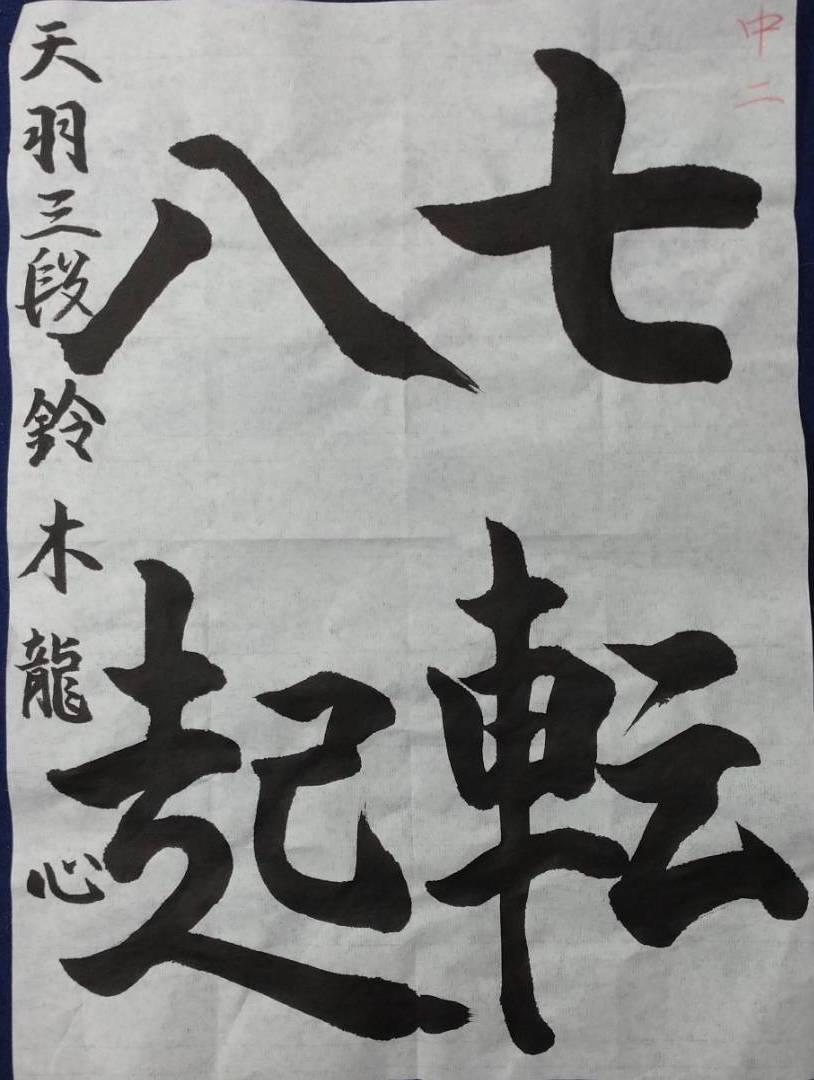 中二
七転
八起
天羽三段 鈴木龍心